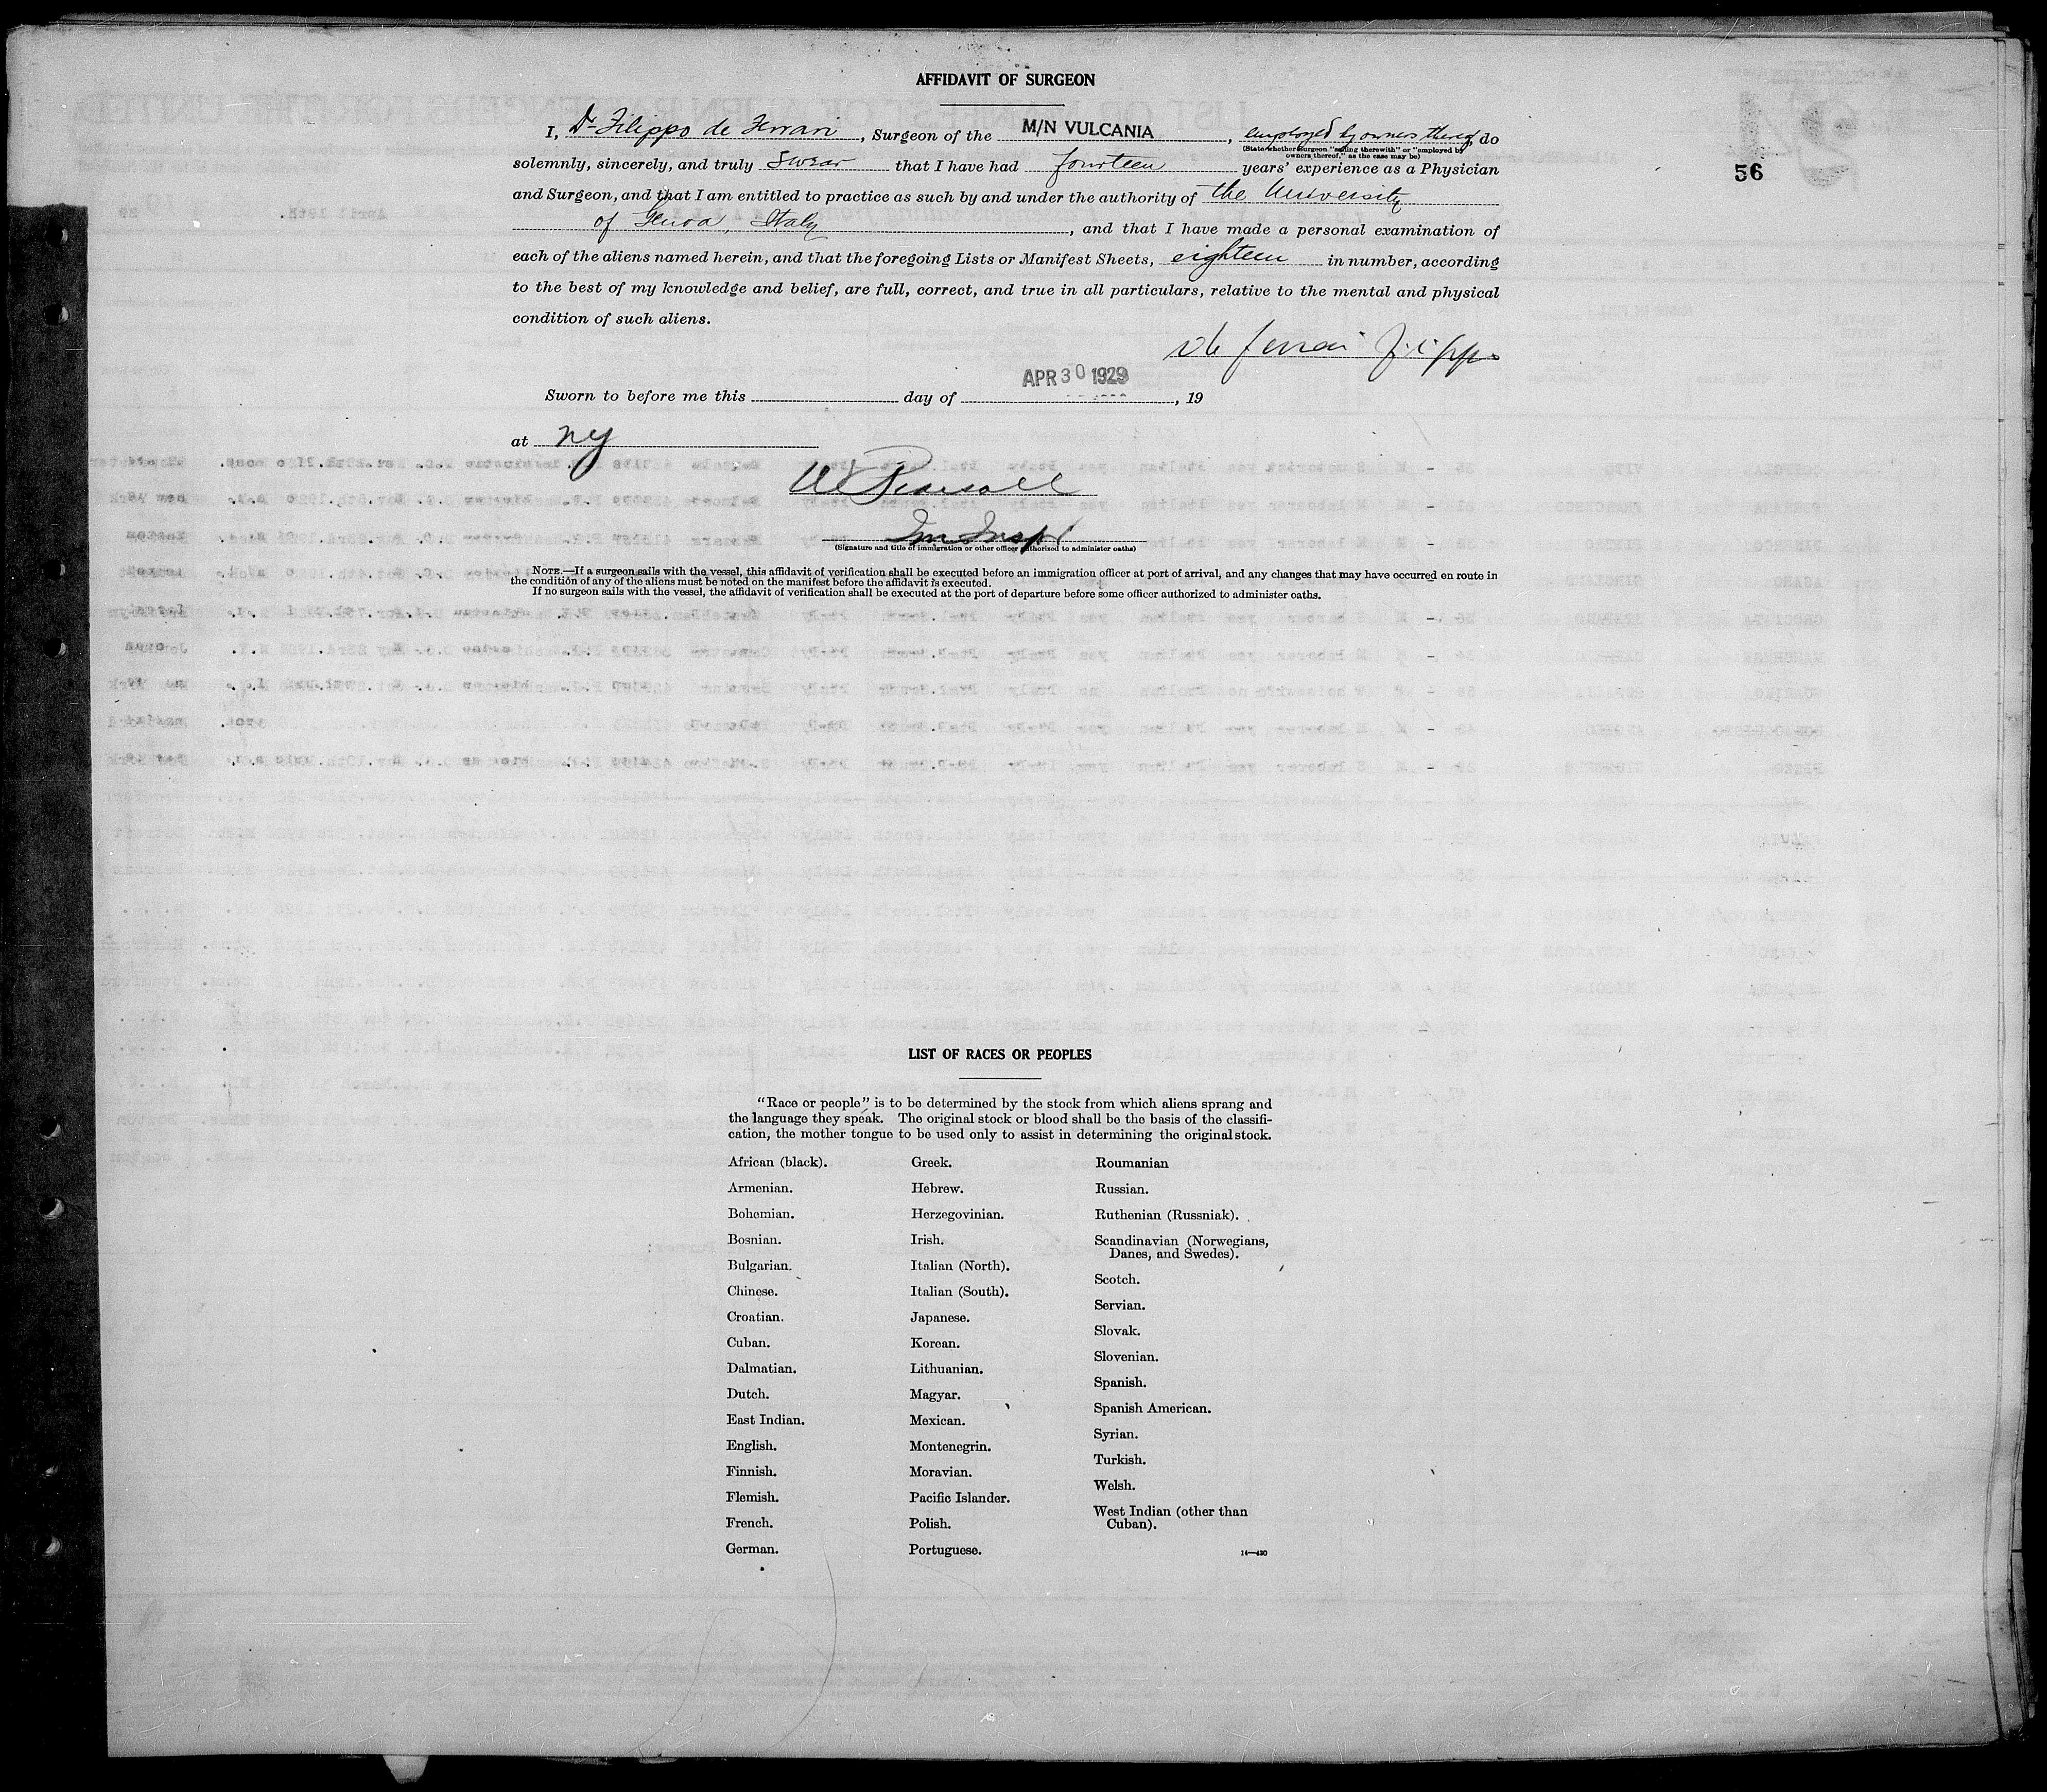 AFFIDAVIT OF SURGEON
I, Dr Filippo de Ferrari, Surgeon of the M/N VULCANIA, employed by owners thereof do
(State whether surgeon "sailing therewith" or "employed by
owners thereof," as the case may be)
56
solemnly, sincerely, and truly swear that I have had fourteen years' experience as a Physician
and Surgeon, and that I am entitled to practice as such by and under the authority of the University
of Genoa, Italy, and that I have made a personal examination of
each of the aliens named herein, and that the foregoing Lists or Manifest Sheets, eighteen in number, according
to the best of my knowledge and belief, are full, correct, and true in all particulars, relative to the mental and physical
condition of such aliens.
De Ferrari Filippo
APR 30 1929
Sworn to before me this day of , 19
at NY
Im Insp
(Signature and title of immigration or other officer authorized to administer oaths)
NOTE.—If a surgeon sails with the vessel, this affidavit of verification shall be executed before an immigration officer at port of arrival, and any changes that may have occurred en route in
the condition of any of the aliens must be noted on the manifest before the affidavit is executed.
If no surgeon sails with the vessel, the affidavit of verification shall be executed at the port of departure before some officer authorized to administer oaths.
LIST OF RACES OR PEOPLES
"Race or people" is to be determined by the stock from which aliens sprang and
the language they speak. The original stock or blood shall be the basis of the classifi-
cation, the mother tongue to be used only to assist in determining the original stock.
African (black).
Armenian.
Bohemian.
Bosnian.
Bulgarian.
Chinese.
Croatian.
Cuban.
Dalmatian.
Dutch.
East Indian.
English.
Finnish.
Flemish.
French.
German.
Greek.
Hebrew.
Herzegovinian.
Irish.
Italian (North).
Italian (South).
Japanese.
Korean.
Lithuanian.
Magyar.
Mexican.
Montenegrin.
Moravian.
Pacific Islander.
Polish.
Portuguese.
Roumanian
Russian.
Ruthenian (Russniak).
Scandinavian (Norwegians,
Danes, and Swedes).
Scotch.
Servian.
Slovak.
Slovenian.
Spanish.
Spanish American.
Syrian.
Turkish.
Welsh.
West Indian (other than
Cuban).
14—420